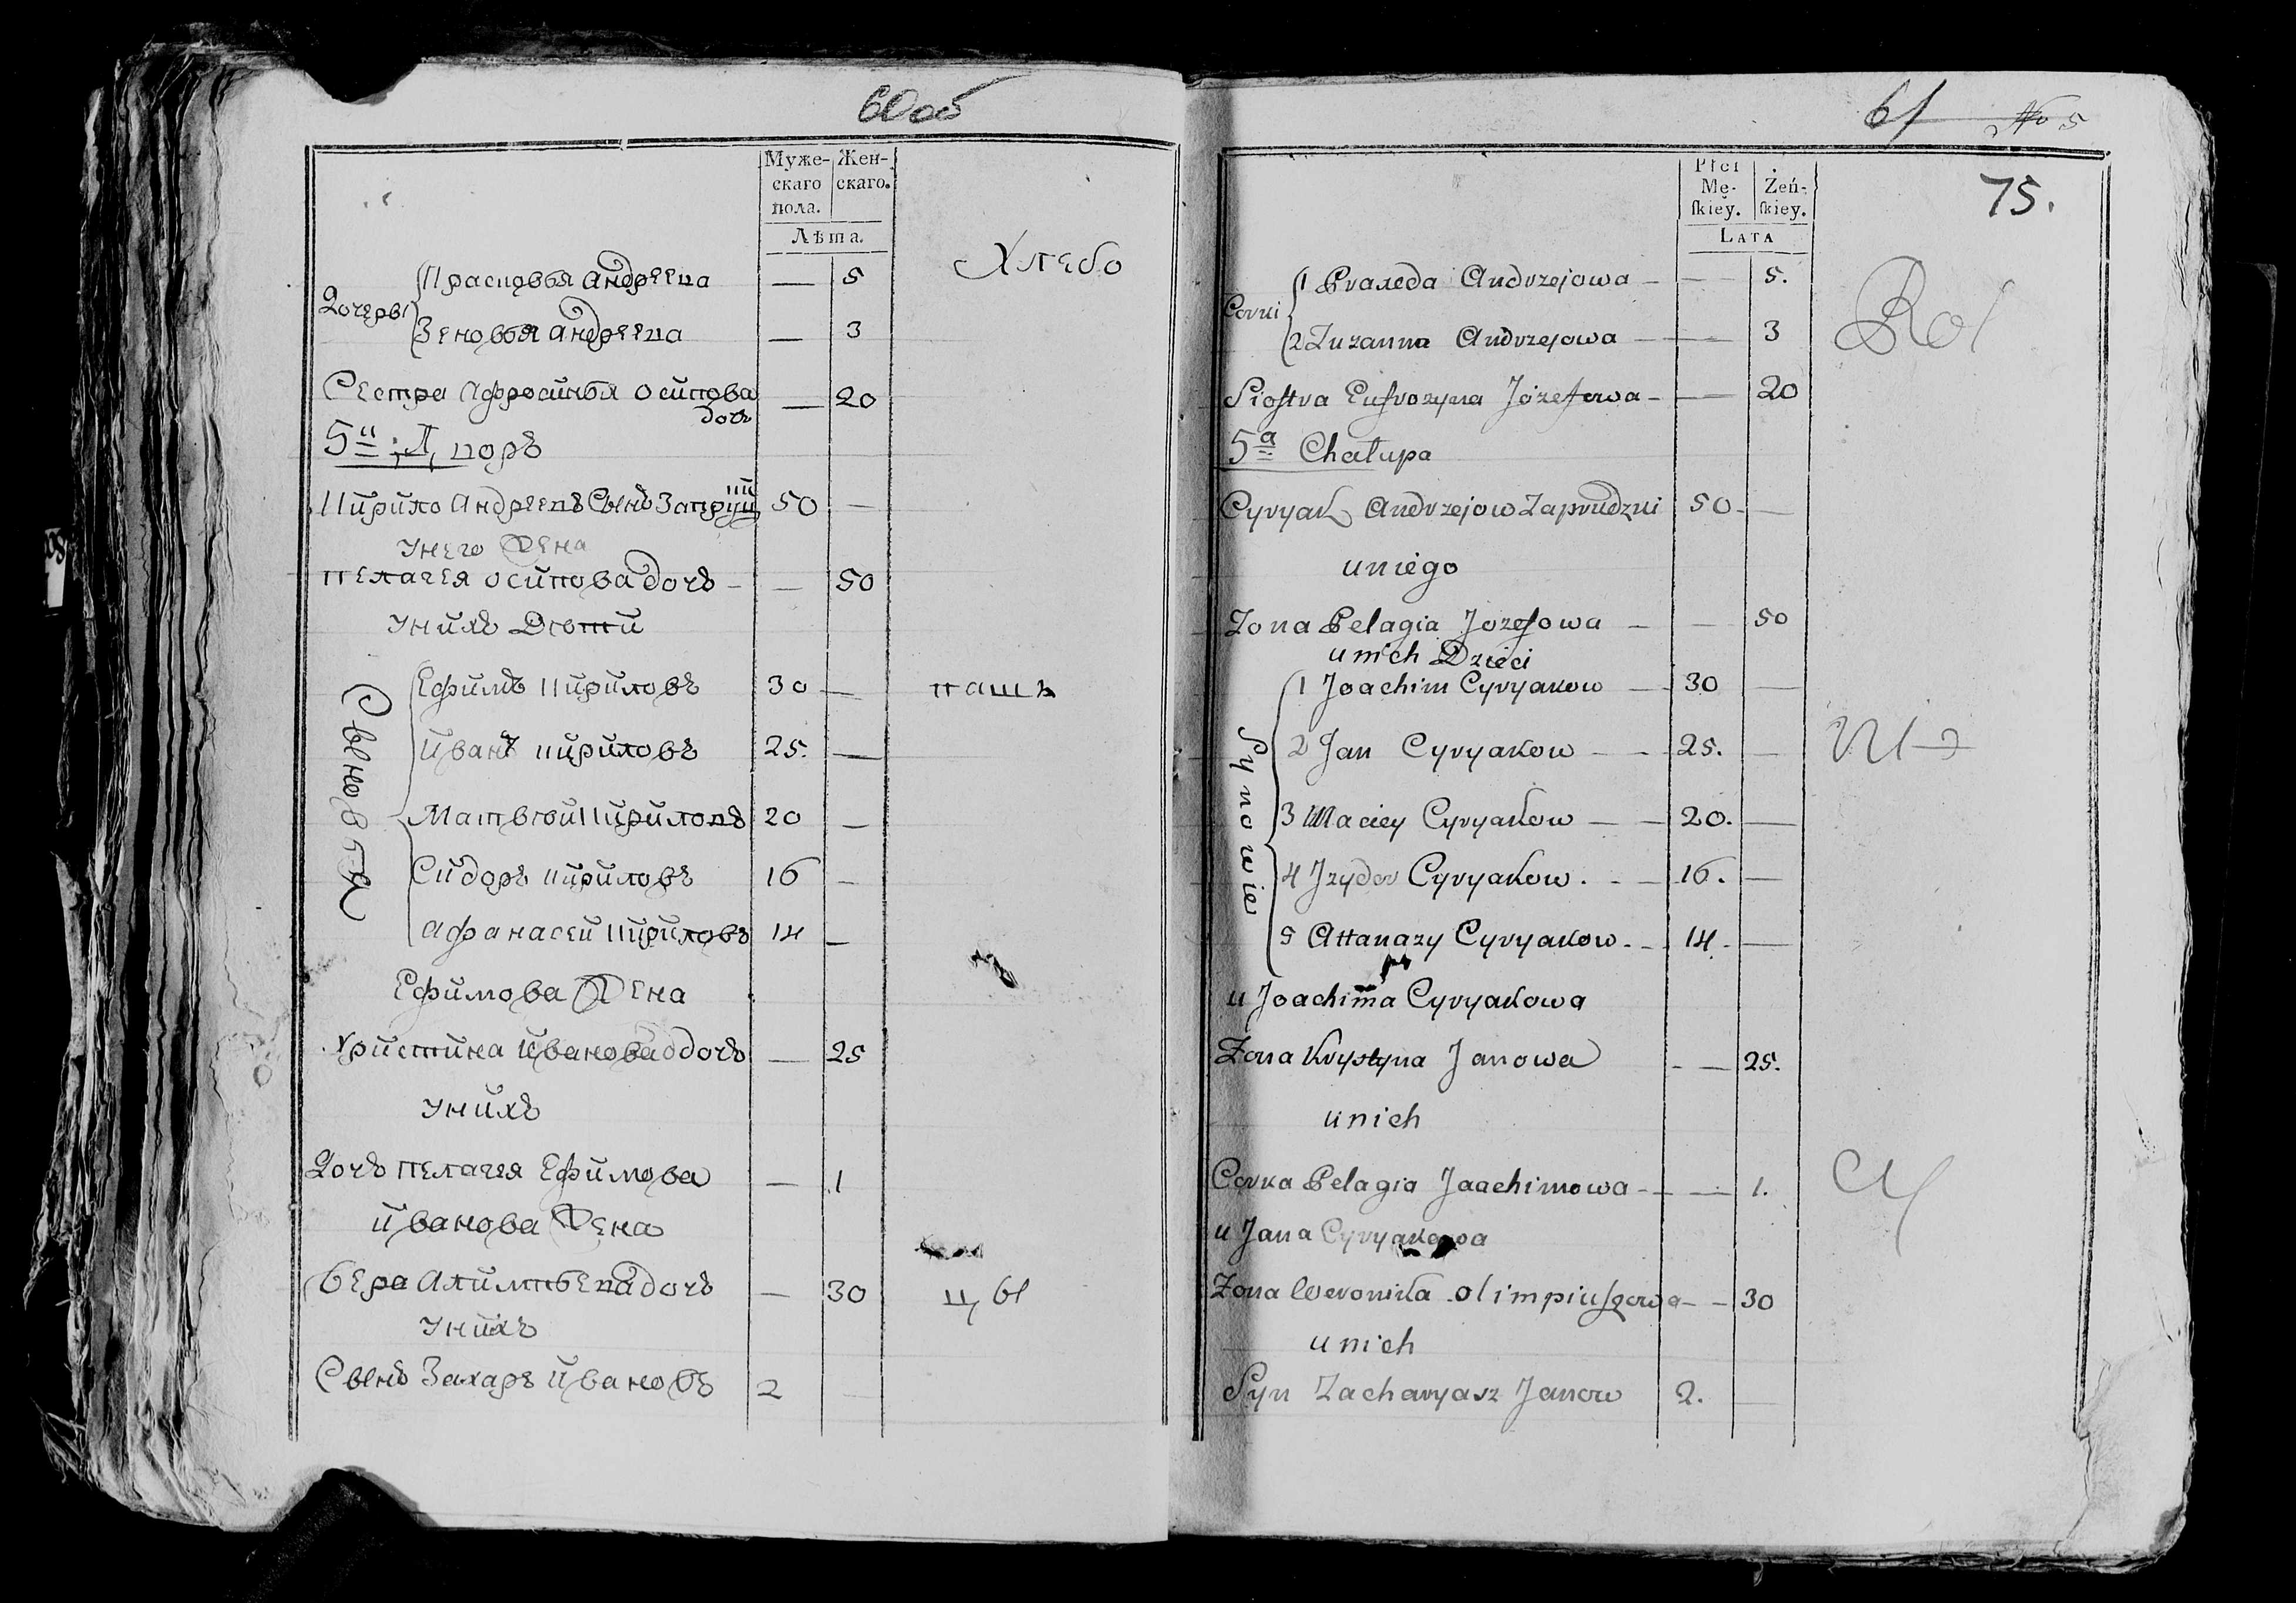 60об
Муже- Жен-
скаго скаго.
пола.
Лѣта.
Хлебо
Дочеры
Прасковья Андреева — 5
Зеновья Андреева — 3
Сестра Афросинья Осипова — 20
дочь
5й Дворъ
Кирило Андреевъ Сынъ 50 —
У него Жена
Пелагея Осипова дочь — — 50
У нихъ Дѣти
Сыновья
Ефимъ Кириловъ 30 — пашъ
Иванъ Кириловъ 25. —
Матвѣй Кириловъ 20 —
Сидоръ Кириловъ 16 —
Афанасей Кириловъ 14 —
Ефимова Жена
Христина Иванова дочь — 25
У нихъ
Дочь Пелагея Ефимова — 1
Иванова Жена
Вера Алимпьева дочь — 30 цы
У нихъ
Сынъ Захаръ Ивановъ 2 —
61 No 5
75.
Płci
Mę- Żeń-
skiey. skiey.
Lata
Corki
1 Praxeda Andrzejowa — — 5.
2 Zuzanna Andrzejowa — — 3
Rol
Siostra Eufrozyna Józefowa — — 20
5a Chałupa
Cyryak Andrzejow Zaprudzki 50 — —
u niego
Zona Pelagia Jozefowa — — 50
u nich Dzieci
Synowie
1 Joachim Cyryakow — 30 —
2 Jan Cyryakow — — 25. —
3 Maciey Cyryakow — — 20. —
4 Jzydor Cyryakow . - — 16. —
5 Attanazy Cyryakow - - 14. —
u Joachima Cyryakowa
Zona Krystyna Janowa - — 25.
u nich
Corka Pelagia Joachimowa - — — 1.
u Jana Cyryakowa
Zona Weronika Olimpiuszowa — — 30
u nich
Syn Zacharyasz Janow 2. —